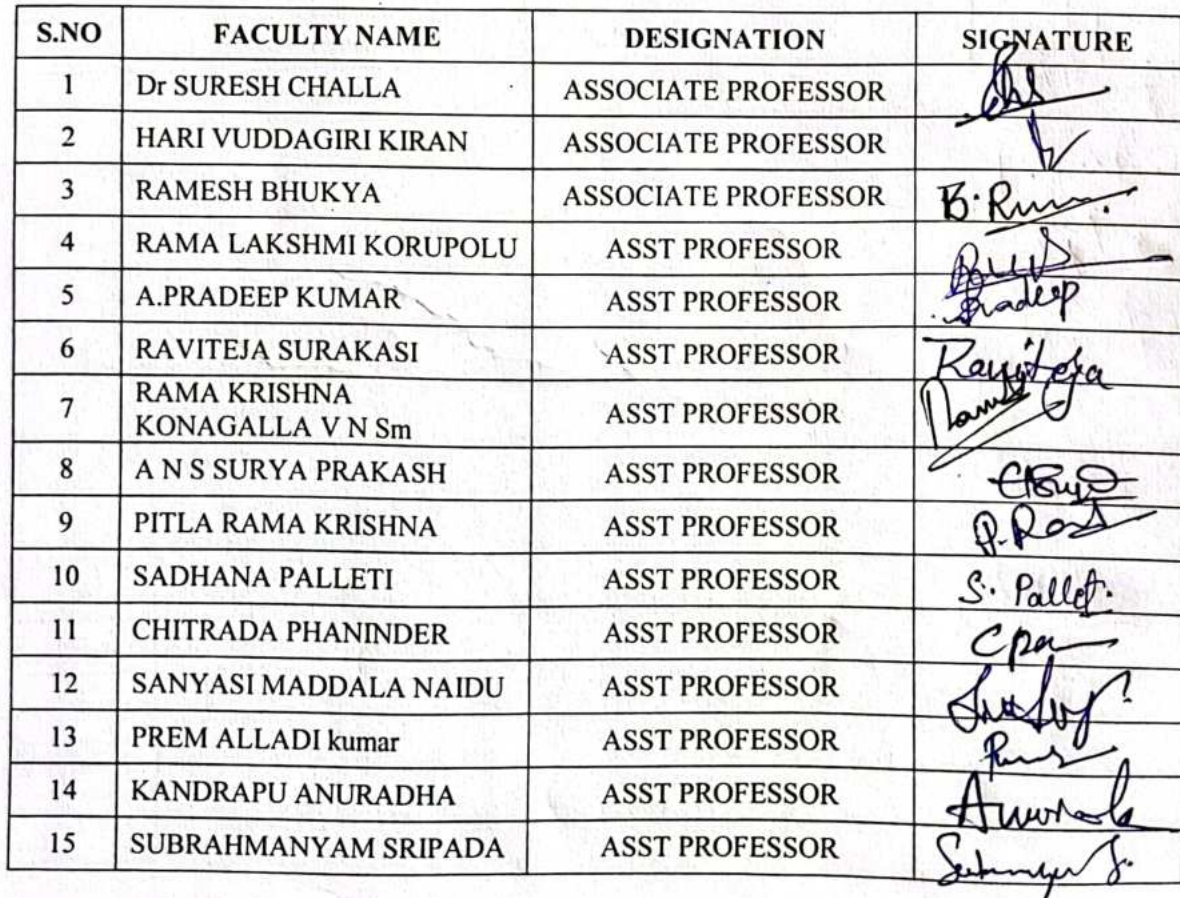 S.NO FACULTY NAME DESIGNATION SIGNATURE
1 Dr SURESH CHALLA ASSOCIATE PROFESSOR
2 HARI VUDDAGIRI KIRAN ASSOCIATE PROFESSOR
3 RAMESH BHUKYA ASSOCIATE PROFESSOR B.
4 RAMA LAKSHMI KORUPOLU ASST PROFESSOR
5 A.PRADEEP KUMAR ASST PROFESSOR Pradeep
6 RAVITEJA SURAKASI ASST PROFESSOR Raviteja
7 RAMA KRISHNA
KONAGALLA V N Sm ASST PROFESSOR
8 A N S SURYA PRAKASH ASST PROFESSOR
9 PITLA RAMA KRISHNA ASST PROFESSOR
10 SADHANA PALLETI ASST PROFESSOR S. Pallet.
11 CHITRADA PHANINDER ASST PROFESSOR
12 SANYASI MADDALA NAIDU ASST PROFESSOR
13 PREM ALLADI kumar ASST PROFESSOR
14 KANDRAPU ANURADHA ASST PROFESSOR
15 SUBRAHMANYAM SRIPADA ASST PROFESSOR